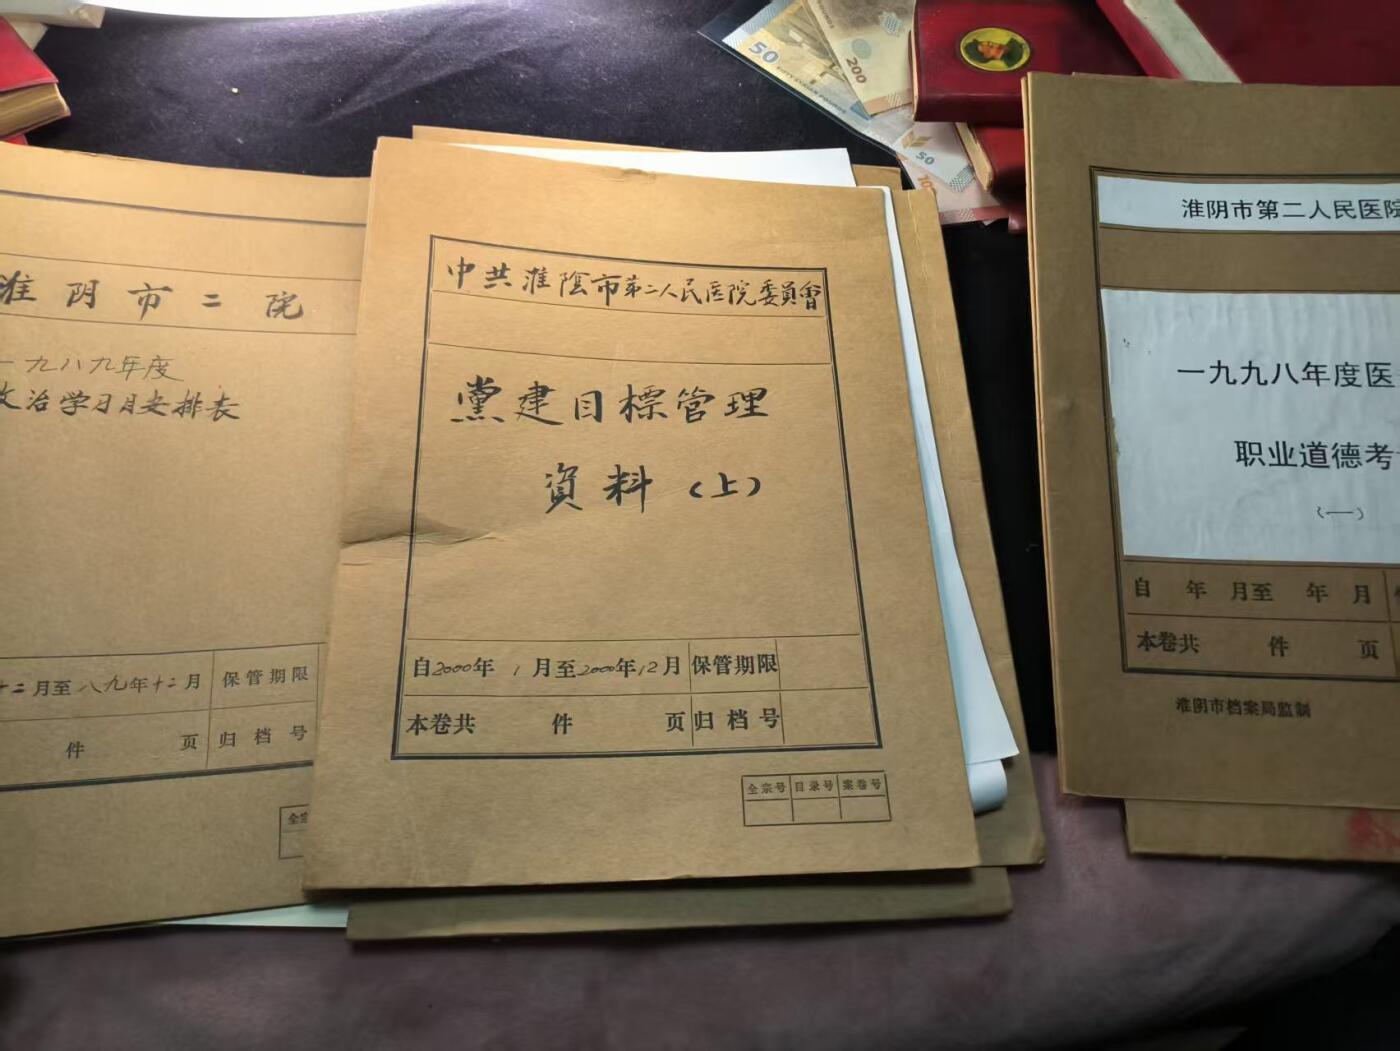 淮阴市二院
一九八九年度
政治学习月安排表
十二月至八九年十二月 保管期限
件 页 归档号
全宗
中共淮陰市第二人民医院委員會
黨建目標管理
資料（上）
自2000年1月至2000年12月 保管期限
本卷共 件 页 归档号
全宗号 目录号 案卷号
50
200
50
淮阴市第二人民医院
一九九八年度医
职业道德考
（一）
自 年 月至 年 月
本卷共 件 页
淮阴市档案局监制